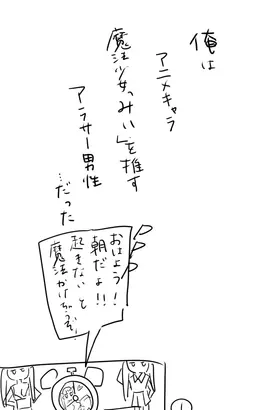 俺は
アニメキャラ
魔法少女っみぃ」を推す
アラサー男性
…だった
おはよう！
朝だよ！！
起きないと
魔法かけちゃうぞ
①